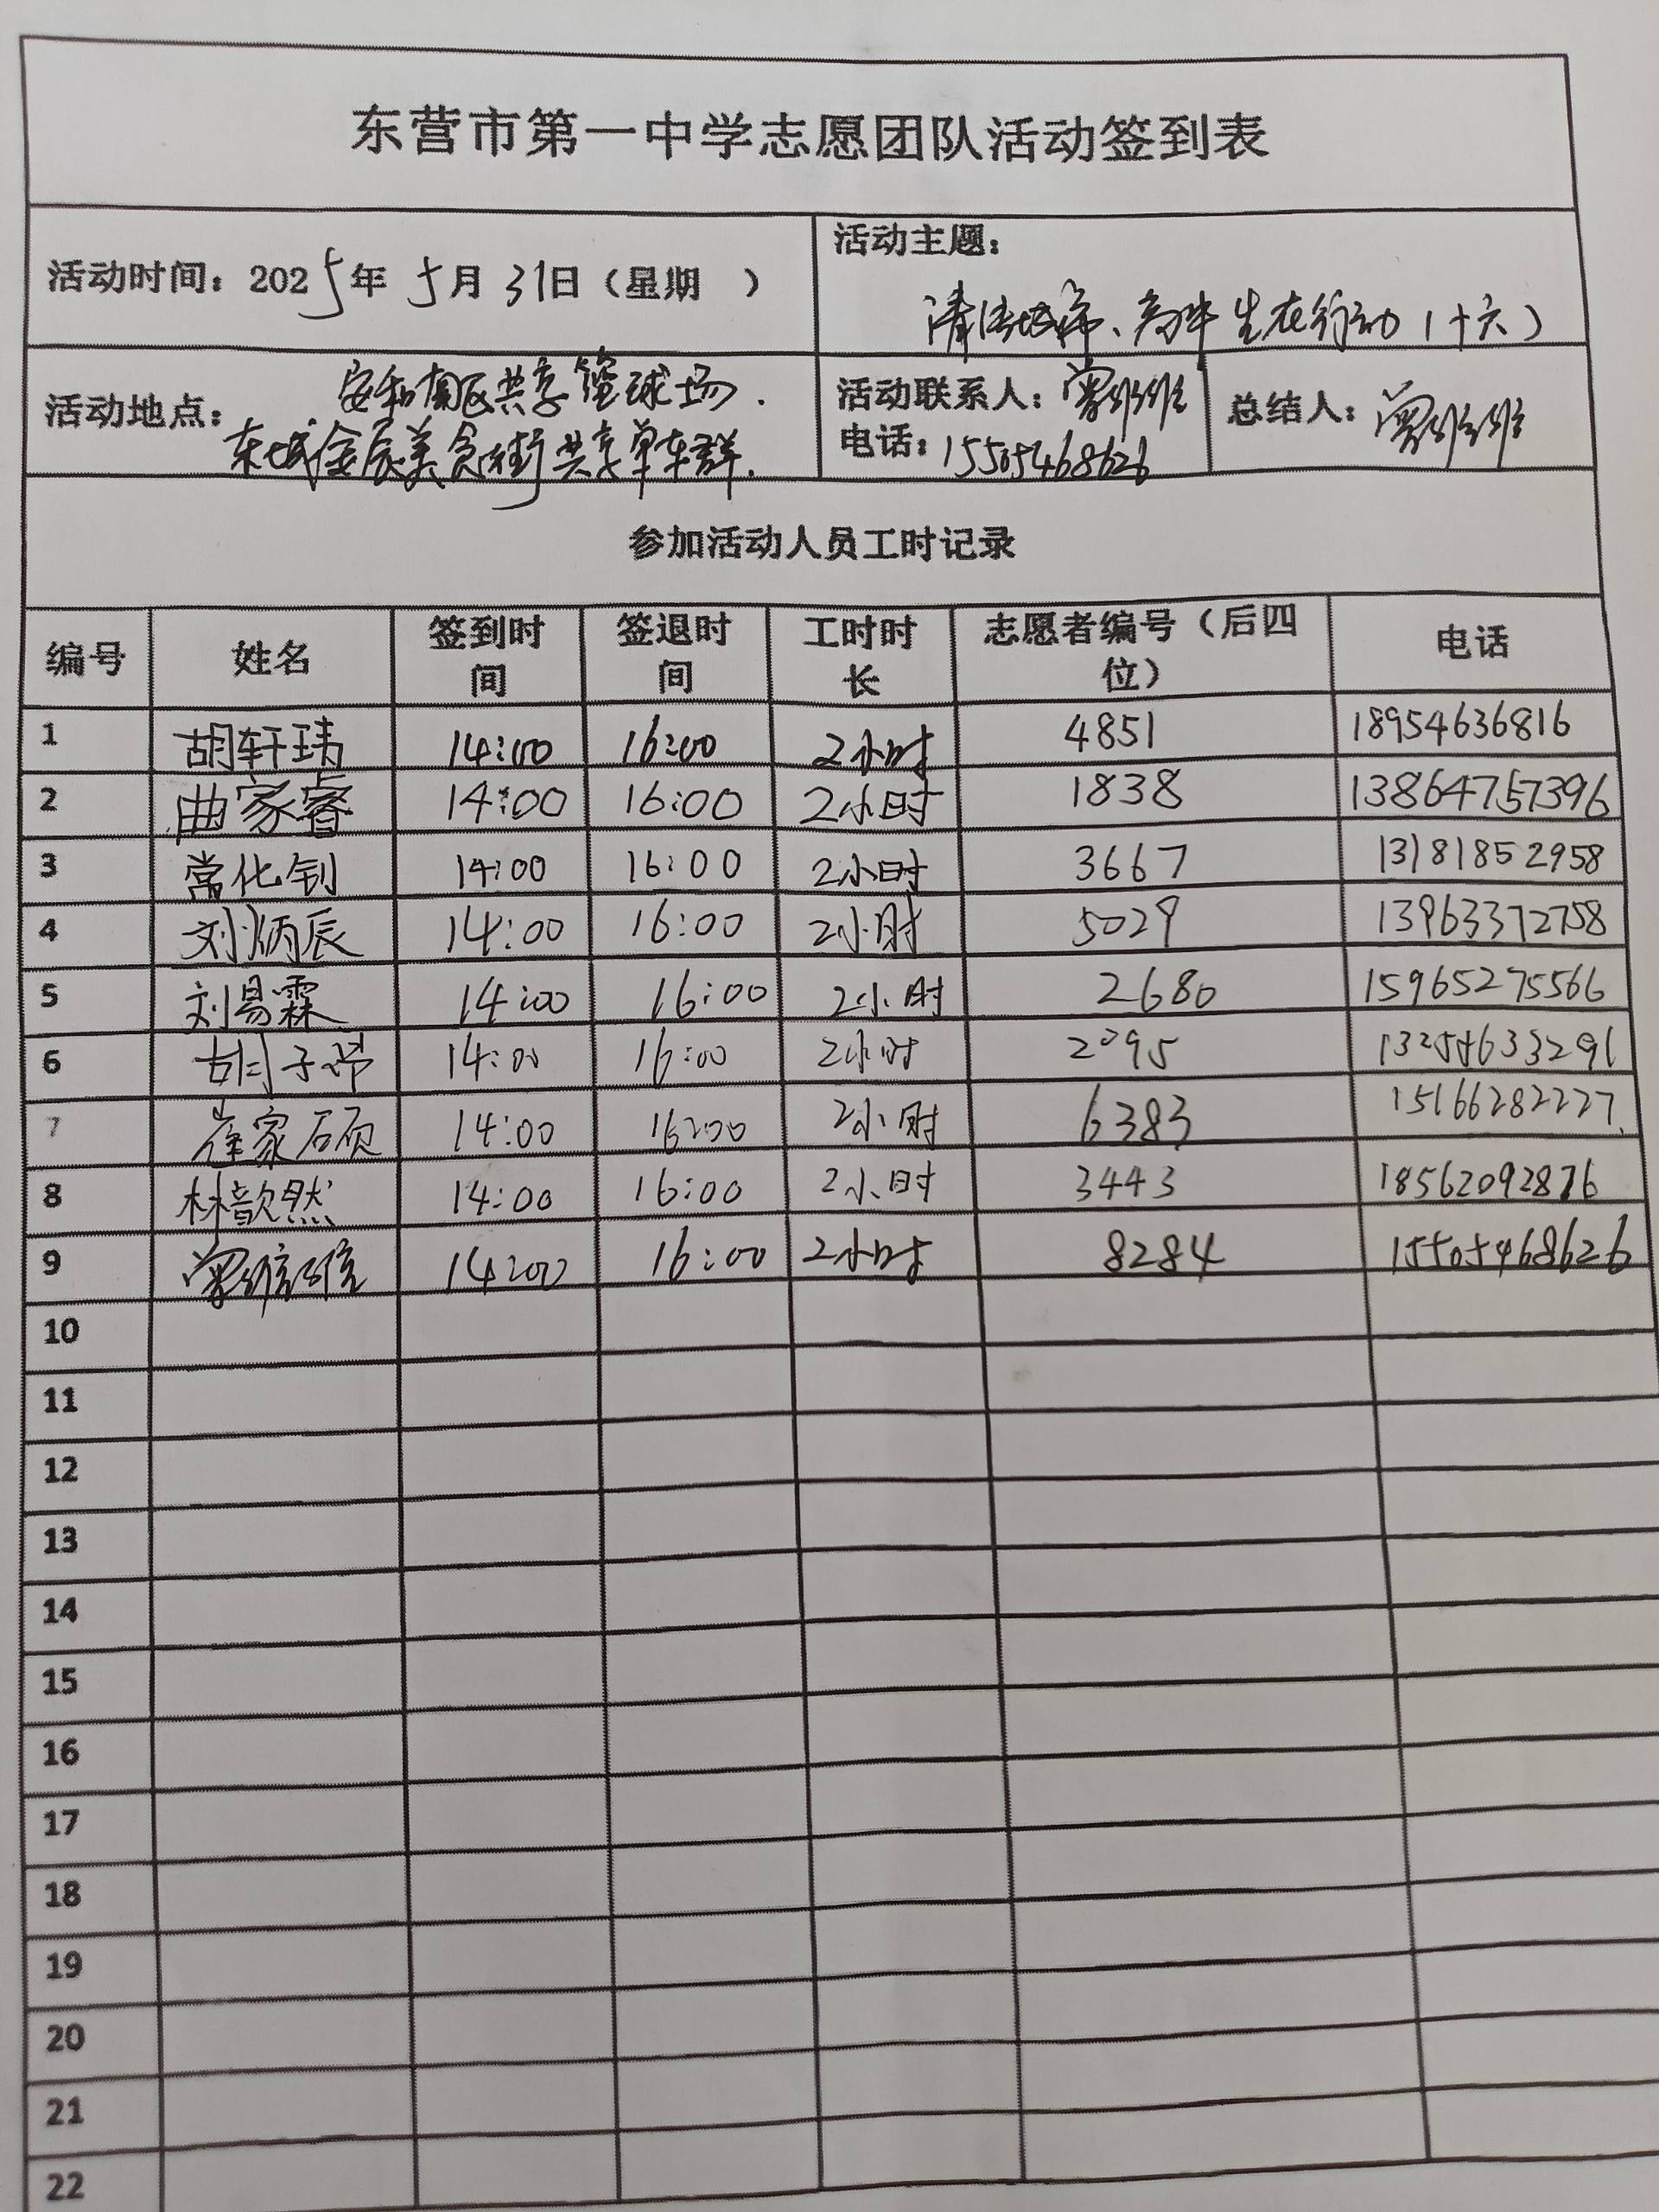 东营市第一中学志愿团队活动签到表
活动时间：2025年 5月 31日（星期 ）
活动主题：
清洁城市、高中生在行动（十六）
活动地点：安和南区共享篮球场.
东城金辰美食街共享单车群.
活动联系人：
电话：15505468626
总结人：
参加活动人员工时记录
编号 姓名 签到时间 签退时间 工时时长 志愿者编号（后四位） 电话
1 胡轩玮 14:00 16:00 2小时 4851 18954636816
2 曲家睿 14:00 16:00 2小时 1838 13864757396
3 常化钊 14:00 16:00 2小时 3667 13181852958
4 刘炳辰 14:00 16:00 2小时 5029 13963372758
5 刘易霖 14:00 16:00 2小时 2680 15965275566
6 14:00 16:00 2小时 2095 13254633291
7 崔家硕 14:00 16:00 2小时 6383 15166282227.
8 林歆然 14:00 16:00 2小时 3443 18562092876
9 14:00 16:00 2小时 8284 15505468626
10
11
12
13
14
15
16
17
18
19
20
21
22